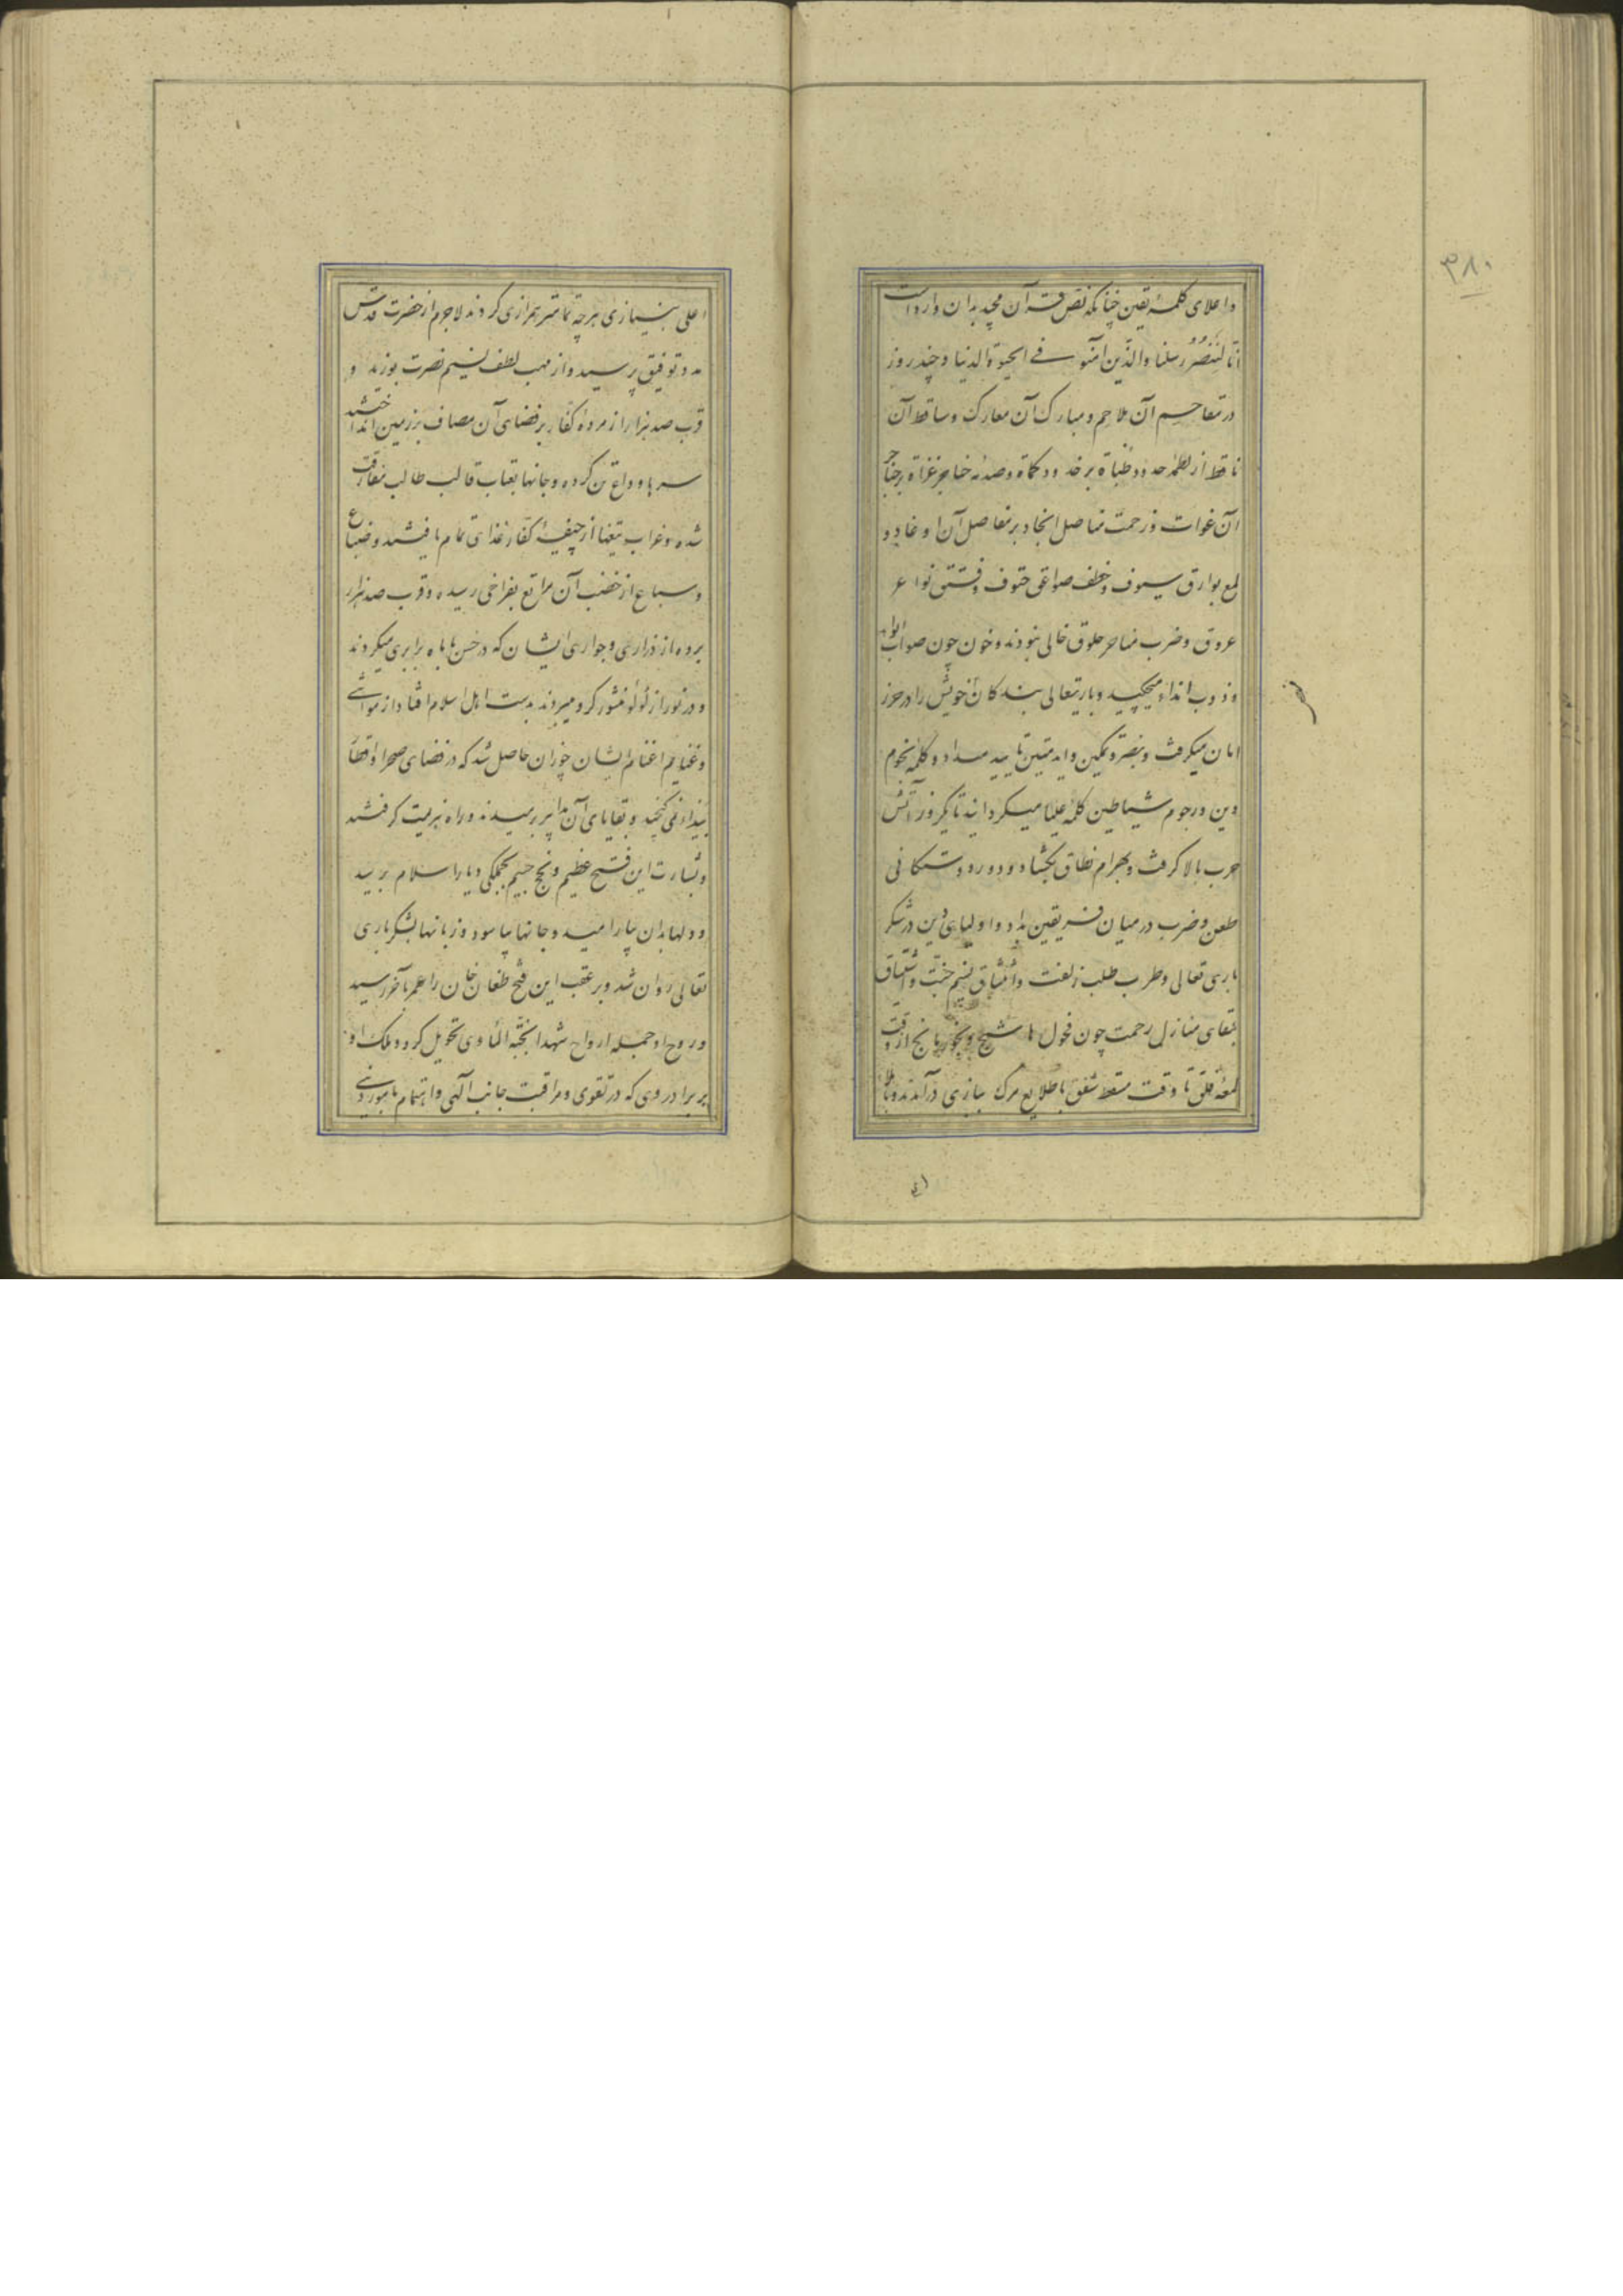 ۳۸۰
واعلای کلمهٔ یقین چنانکه نص قرآن مجید بدان وارد است
انّا لَنَنصُرُ رسلنا والّذین آمنوا فی الحیوة الدنیا و چند روز
در تقاحم آن ملاحم و مبارک آن معارک و ساقط آن
ناقط از لطمهٔ حدود ظباة بر خدود کماة و صدمهٔ خناجر غزاة بر حناجر
آن غوات و زحمت مناصل انجاد بر مفاصل آن اوغاد و
لمع بوارق سیوف و خطف صواعق حتوف و فتق نواعر
عروق و ضرب مناحر حلوق خالی نبودند و خون چون صواب
و ذوب انداء میچکید و باریتعالی بندکان خویش را در حرز
امان میکرفت و بنصر و تمکین و اید متین تایید میداد و کلمه نجوم
دین و رجوم شیاطین کلمهٔ علیا میکردانید تا یکروز آتش
حرب بالا کرفت و بهرام نطاق بکشاد و دور دوستکانی
طعن و ضرب در میان فریقین بداد و اولیای دین در شکر
باری تعالی و طرب طلب زلفت و انتشاق نسیم جنت و اشتیاق
بقای منازل رحمت چون فحول هایج و بحور مایج از وقت
لمعهٔ فلق تا وقت مسقط شفق با طلایع مرک ببازی درآمدند و با ملاء
اعلی بنیازی هرچه تمامتر همرازی کردند لاجرم از حضرت قدس
مدد توفیق برسید و از مهب لطف نسیم نصرت بوزید و
قرب صد هزار از مرده کفار بر فضای آن مصاف بر زمین انداختند
سرها وداع تن کرده و جانها بعتاب قالب طالب مفارقت
شده و غراب تیغها از جیفهٔ کفار غذای تمام یافتند و ضباع
و سباع از خصب آن مراتع بفراخی رسیده و قرب صد هزار
برده از ذراری و جواری ایشان که در حسن با ماه برابری میکردند
و در نور از لؤلؤ منثور کرو میبردند بدست اهل اسلام افتاد و از مواشی
و غنایم اغنام ایشان چندان حاصل شد که در فضای صحرا و اقطار
بیدا نمی کنجید و بقایای آن مدابیر برمیدند و راه هزیمت کرفتند
و بشارت این فتح عظیم و نجح جسیم بجملکی دیار اسلام برسید
و دلها بدان بیارامید و جانها بیاسود و زبانها بشکر باری
تعالی روان شد و بر عقب این فتح طغان خان را عمر بآخر رسید
و روح او جمله ارواح شهدا بجنّة المأوی تحویل کرد و ملک او
بر برادر وی که در تقوی و مراقبت جانب الهی و اهتمام بامور دینی